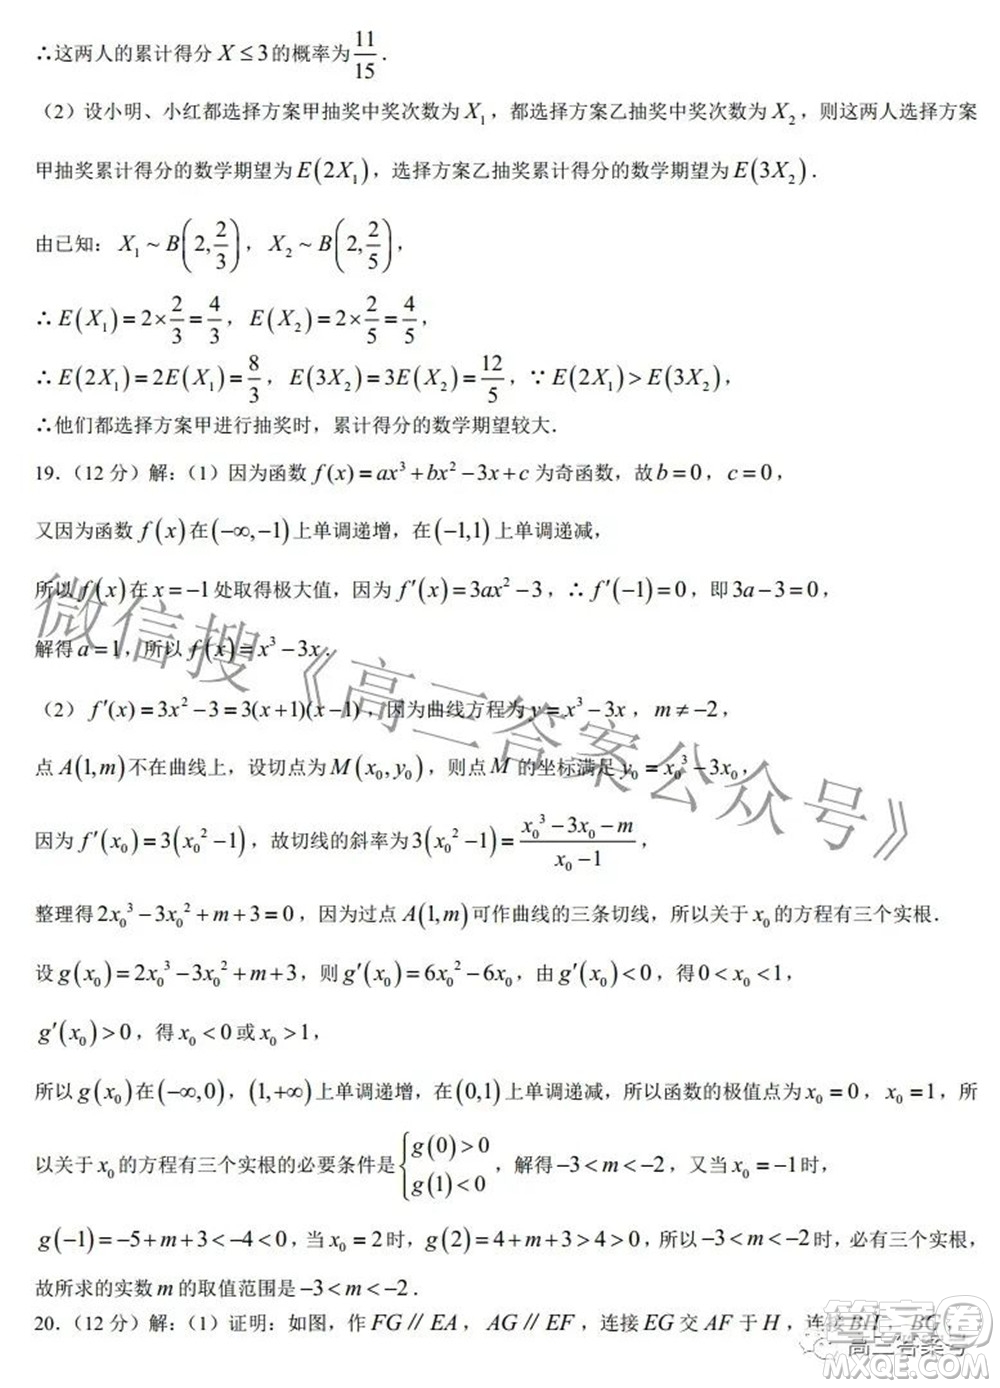 ∴这两人的累计得分 X ≤ 3 的概率为 11/15 .
（2）设小明、小红都选择方案甲抽奖中奖次数为 X₁，都选择方案乙抽奖中奖次数为 X₂，则这两人选择方案
甲抽奖累计得分的数学期望为 E(2X₁)，选择方案乙抽奖累计得分的数学期望为 E(3X₂).
由已知： X₁ ~ B(2, 2/3)， X₂ ~ B(2, 2/5)，
∴ E(X₁) = 2 × 2/3 = 4/3， E(X₂) = 2 × 2/5 = 4/5，
∴ E(2X₁) = 2E(X₁) = 8/3， E(3X₂) = 3E(X₂) = 12/5，∵ E(2X₁) > E(3X₂)，
∴他们都选择方案甲进行抽奖时，累计得分的数学期望较大.
19.（12 分）解：（1）因为函数 f(x) = ax³ + bx² − 3x + c 为奇函数，故 b = 0，c = 0，
又因为函数 f(x) 在 (−∞, −1) 上单调递增，在 (−1,1) 上单调递减，
所以 f(x) 在 x = −1 处取得极大值，因为 f′(x) = 3ax² − 3，∴ f′(−1) = 0，即 3a − 3 = 0，
解得 a = 1，所以 f(x) = x³ − 3x .
（2） f′(x) = 3x² − 3 = 3(x + 1)(x − 1)，因为曲线方程为 y = x³ − 3x，m ≠ −2，
点 A(1, m) 不在曲线上，设切点为 M(x₀, y₀)，则点 M 的坐标满足 y₀ = x₀³ − 3x₀，
因为 f′(x₀) = 3(x₀² − 1)，故切线的斜率为 3(x₀² − 1) = (x₀³ − 3x₀ − m)/(x₀ − 1)，
整理得 2x₀³ − 3x₀² + m + 3 = 0，因为过点 A(1, m) 可作曲线的三条切线，所以关于 x₀ 的方程有三个实根.
设 g(x₀) = 2x₀³ − 3x₀² + m + 3，则 g′(x₀) = 6x₀² − 6x₀，由 g′(x₀) < 0，得 0 < x₀ < 1，
g′(x₀) > 0，得 x₀ < 0 或 x₀ > 1，
所以 g(x₀) 在 (−∞, 0)，(1, +∞) 上单调递增，在 (0,1) 上单调递减，所以函数的极值点为 x₀ = 0，x₀ = 1，所
以关于 x₀ 的方程有三个实根的必要条件是 { g(0) > 0 g(1) < 0 ，解得 −3 < m < −2，又当 x₀ = −1 时，
g(−1) = −5 + m + 3 < −4 < 0，当 x₀ = 2 时，g(2) = 4 + m + 3 > 4 > 0，所以 −3 < m < −2 时，必有三个实根，
故所求的实数 m 的取值范围是 −3 < m < −2 .
20.（12 分）解：（1）证明：如图，作 FG // EA，AG // EF，连接 EG 交 AF 于 H，连接 BH，BG，
微信搜《高三答案公众号》
答案圈
高三答案号
MXQE.COM